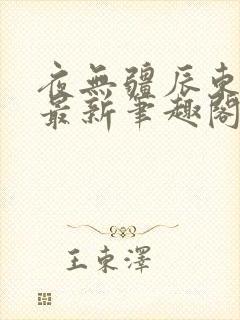 夜無疆辰東
最新筆趣閣
王東澤